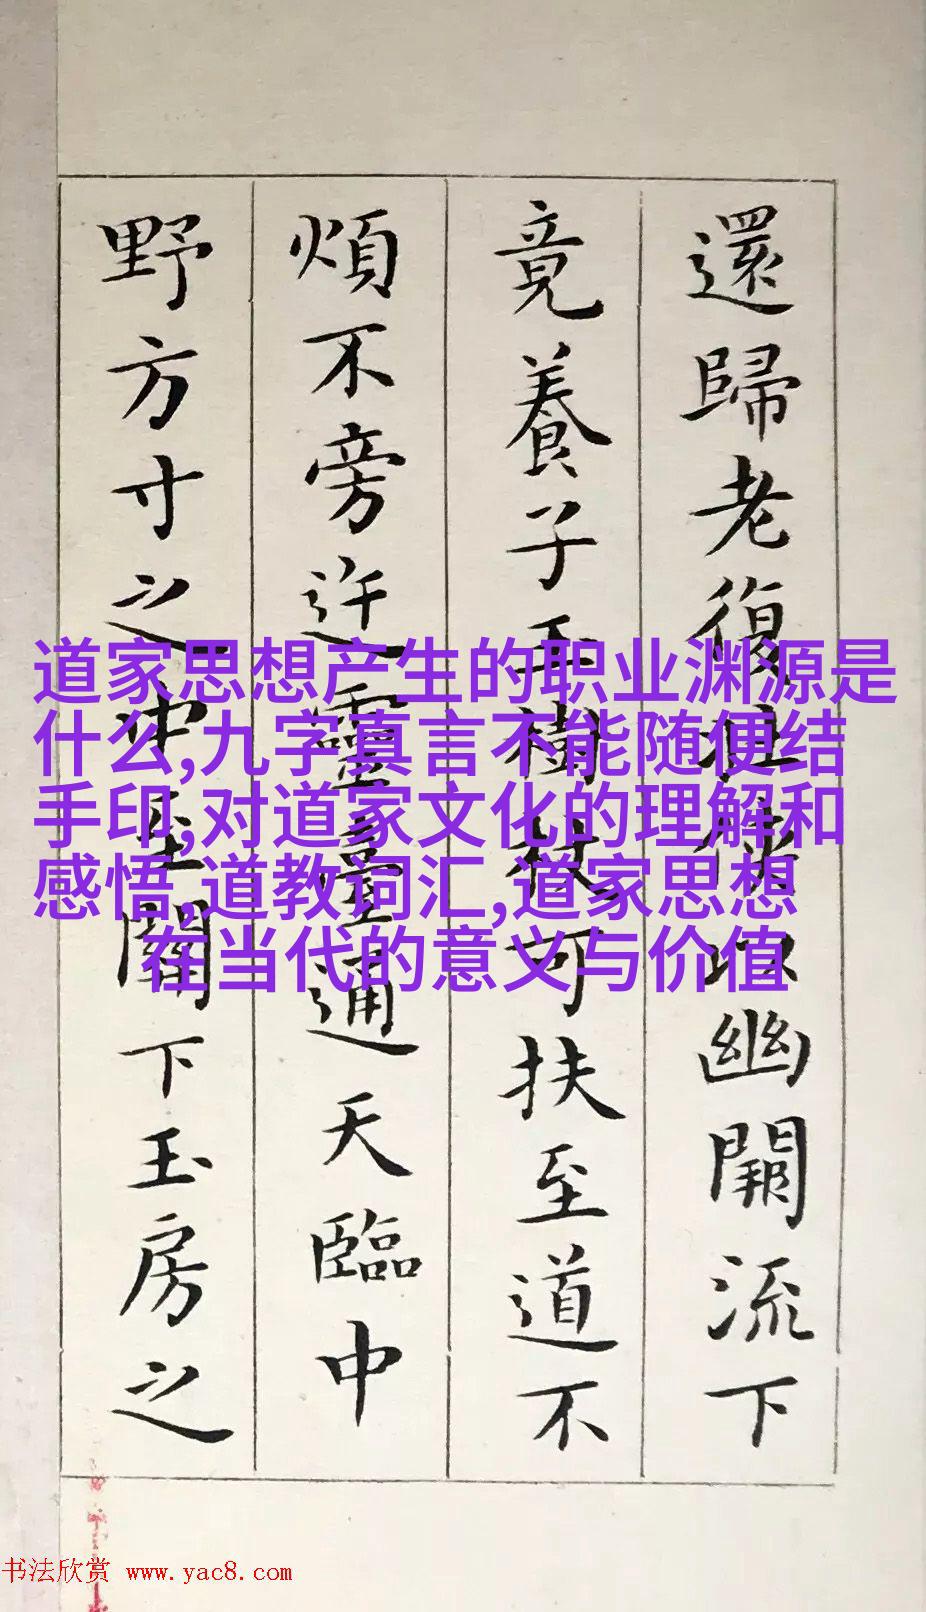 還歸老復壯俠以幽闕流下
竟養子玉樹杖可扶至道不
煩不旁迕靈臺通天臨中
野方寸之中至關下玉房之
道家思想产生的职业渊源是
什么,九字真言不能随便结
手印,对道家文化的理解和
感悟,道教词汇,道家思想
在当代的意义与价值
书法欣赏 www.yac8.com